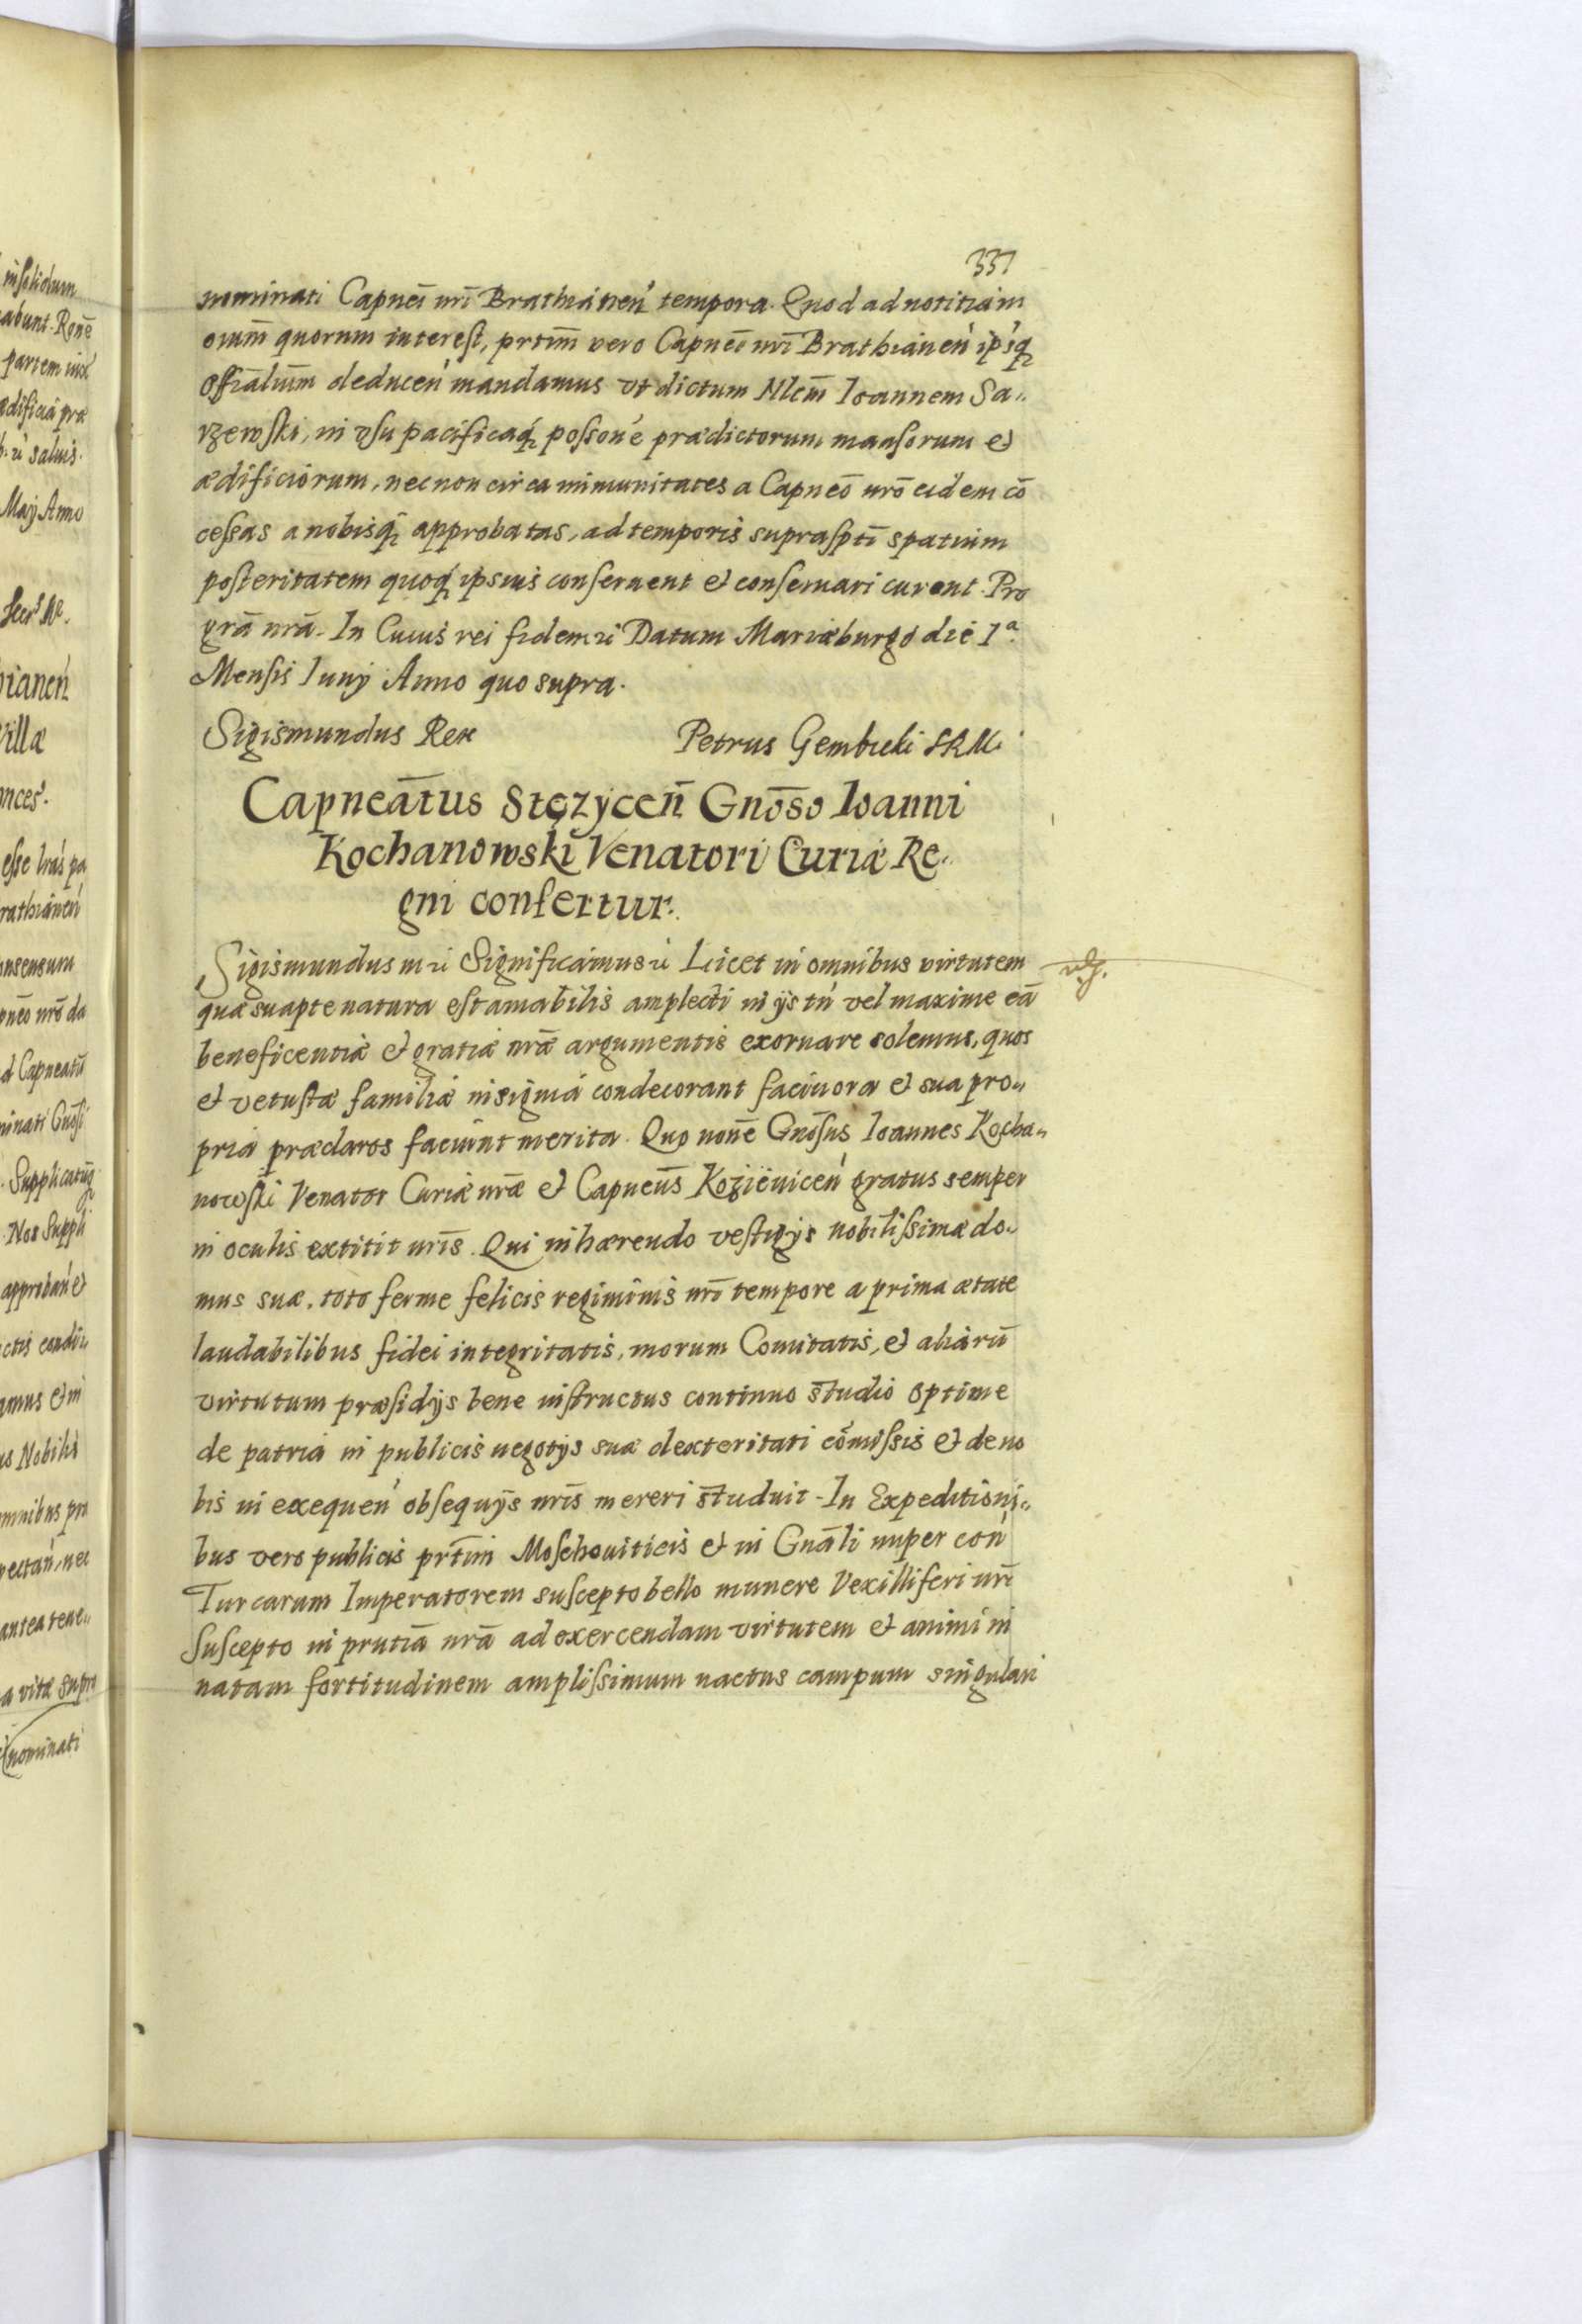 337
nominati Capneī nrī Brathianeń tempora. Quod ad notitiam
oium̄ quorum interest, prtim̄ vero Capneō nrī Brathianeń ipsq́
Offīalium̄ deduceń mandamus vt dictum Nlem̄ Ioannem Sa„
rzewski, in vsu pacificaq́ possone prædictorum mansorum et
ædificiorum, nec non circa immunitates a Capneō nrō eidem cō
cessas a nobisq́ approbatas, ad temporis suprasptī spatium
posteritatem quoq́ ipsius conseruent et conseruari curent. Pro
grā nrā. In Cuius rei fidem ꝛc Datum Mariæburgo die 1ª
Mensis Iunij Anno quo supra.
Sigismundus Rex Petrus Gembicki SRM.
Capneātus Stęzyceñ Gnōso Ioanni
Kochanowski Venatori Curiæ Re„
gni confertur.
Sigismundus m ꝛc Significamus ꝛc Licet in omnibus virtutem
quæ suapte natura est amabilis amplecti in ijs tń vel maxime eā
beneficentiæ et gratiæ nræ argumentis exornare solemus, quos
et vetustæ familiæ insignia condecorant facinora et sua pro„
pria præclaros faciunt merita. Quo nonē Gnōsus Ioannes Kocha„
nowski Venator Curiæ nræ et Capneūs Kozieniceń gratus semper
in oculis extitit nrīs. Qui inhærendo vestigijs nobilissimæ do„
mus suæ, toto ferme felicis regiminis nrī tempore a prima ætate
laudabilibus fidei integritatis, morum Comitatis, et aliarū
virtutum præsidijs bene instructus continuo studio optime
de patria in publicis negotijs suæ dexteritati cōmissis et de no
bis in exequeń obsequijs nrīs mereri studuit. In Expeditioni„
bus vero publicis prtim̄ Moschouiticis et in Gnāli nuper coń
Turcarum Imperatorem suscepto bello munere Vexilliferi nrī
suscepto in prntiā nrā ad exercendam virtutem et animi in
natam fortitudinem amplissimum nactus campum singulari